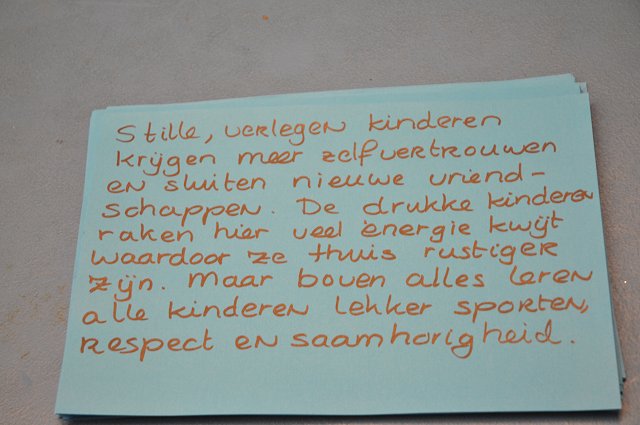 Stille, verlegen kinderen
krijgen meer zelfvertrouwen
en sluiten nieuwe vriend-
schappen. De drukke kinderen
raken hier veel energie kwijt
waardoor ze thuis rustiger
zijn. Maar boven alles leren
alle kinderen lekker sporten,
respect en saamhorigheid.